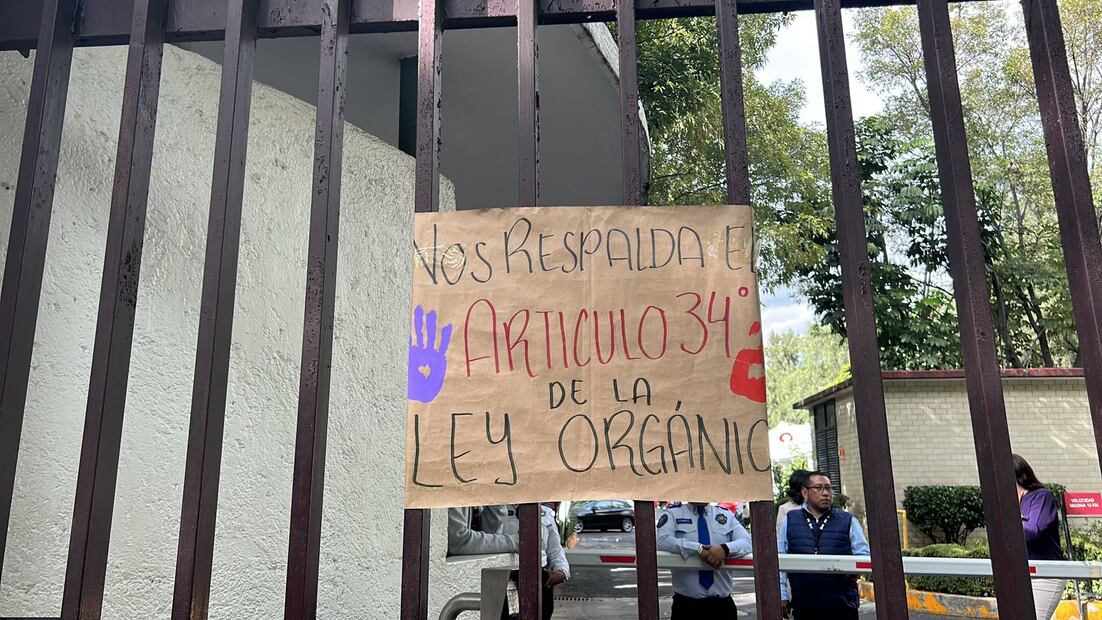 NOS RESPALDA El
ARTICULO 34°
DE LA
LEY ORGÁNIC
VELOCIDAD
MAXIMA 10 KM